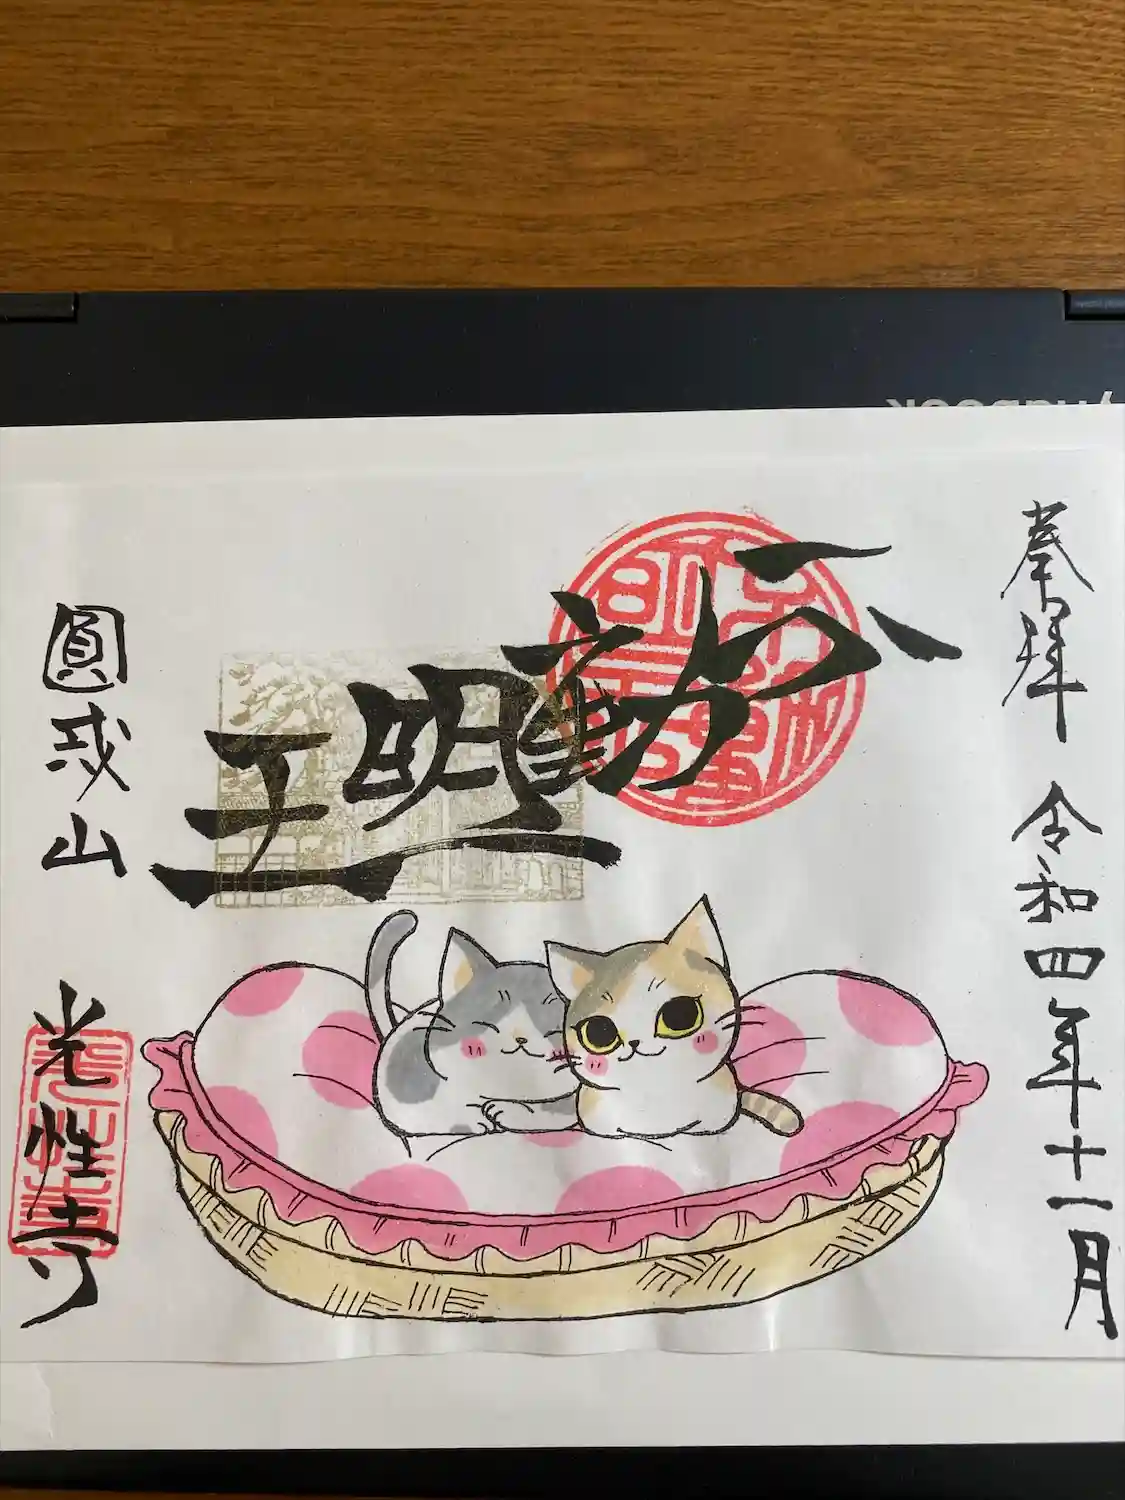 奉拝 令和四年十一月
不動明王
圓戒山 光性寺